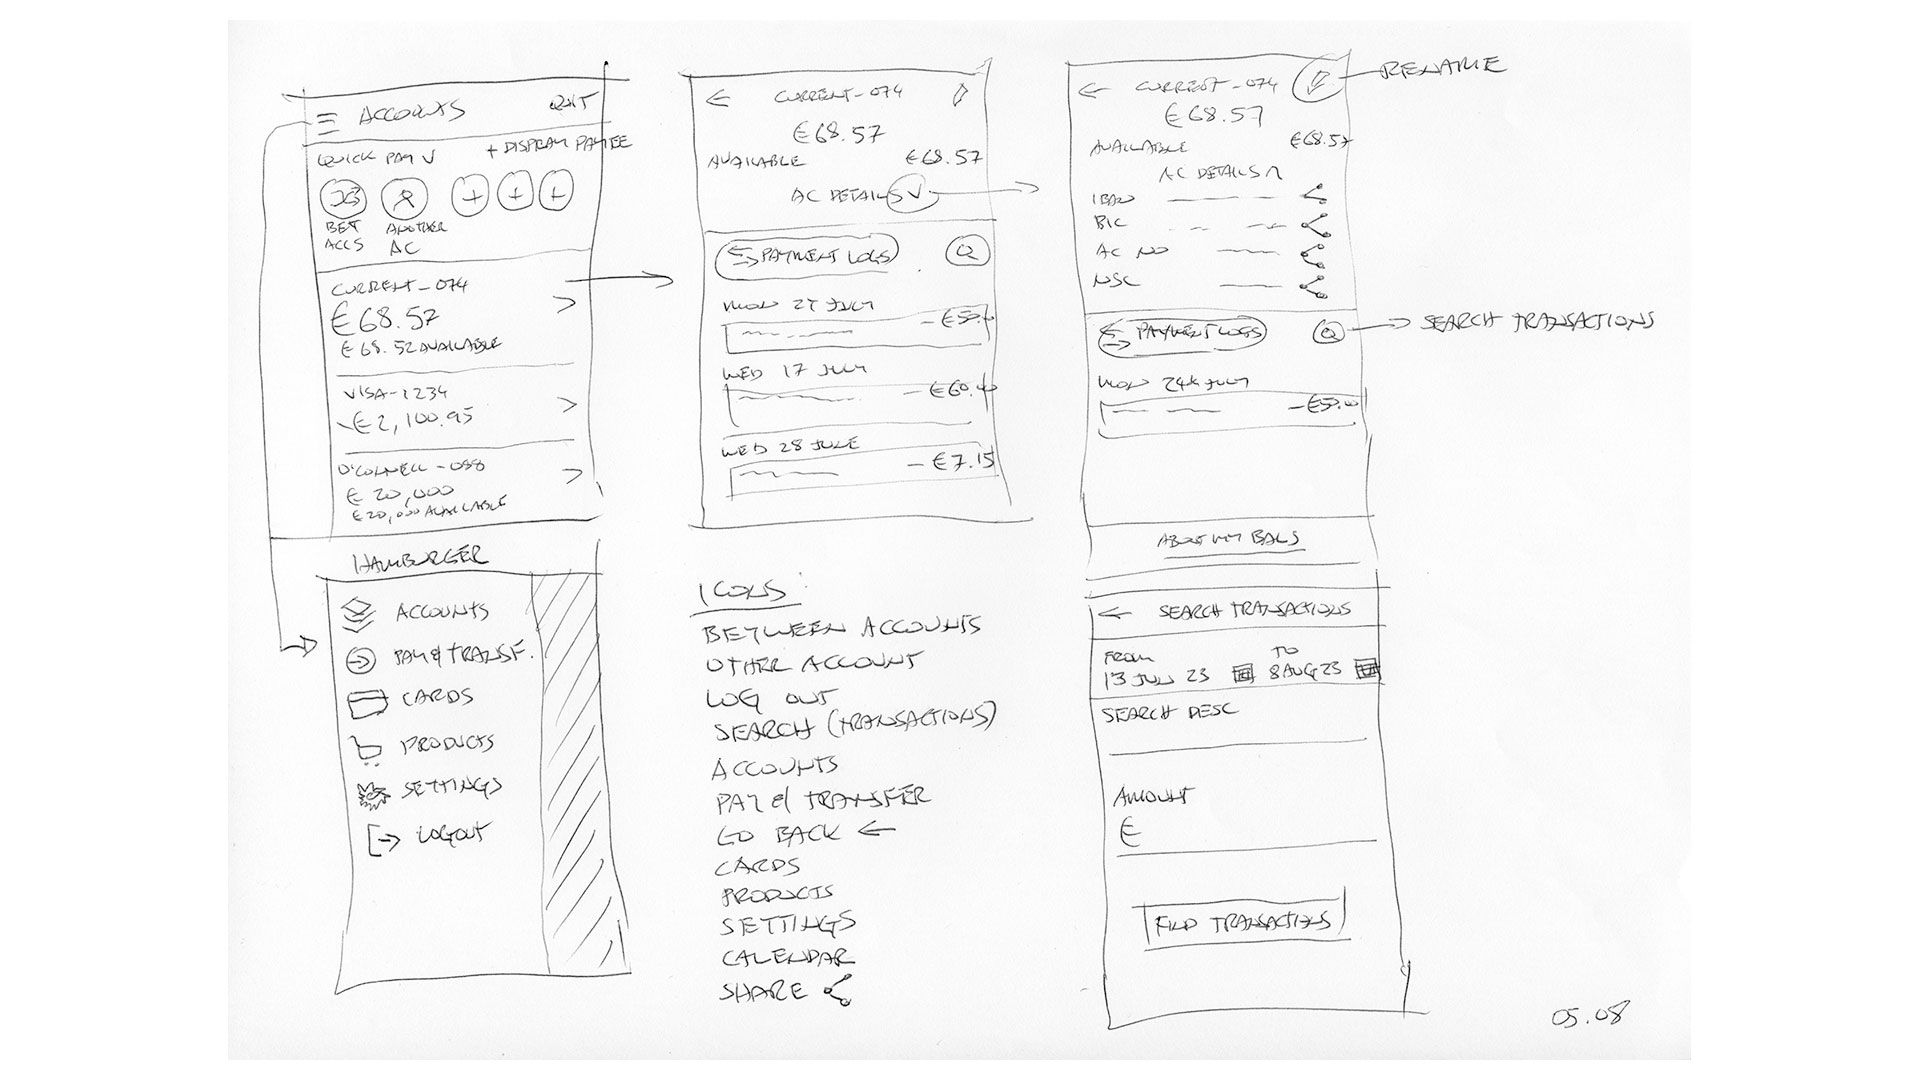 ACCOUNTS QUIT
QUICK PAY
+ DISPLAY PAYEE
BET ACCS
ANOTHER AC
CURRENT - 074
€68.57
€68.52 AVAILABLE
VISA - 1234
-€2,100.95
O'CONNELL - 088
€20,000
€20,000 AVAILABLE
HAMBURGER
ACCOUNTS
PAY & TRANSF.
CARDS
PRODUCTS
SETTINGS
LOGOUT
CURRENT - 074
€68.57
AVAILABLE €68.57
AC DETAILS
PAYMENT LOGS
MON 27 JULY
-€50.00
WED 17 JULY
-€60.40
WED 28 JUNE
-€7.15
ICONS:
BETWEEN ACCOUNTS
OTHER ACCOUNT
LOG OUT
SEARCH (TRANSACTIONS)
ACCOUNTS
PAY & TRANSFER
GO BACK ←
CARDS
PRODUCTS
SETTINGS
CALENDAR
SHARE
CURRENT - 074
RENAME
€68.57
AVAILABLE €68.57
AC DETAILS
IBAN
BIC
AC NO
NSC
PAYMENT LOGS
SEARCH TRANSACTIONS
MON 24th JULY
-€50.00
ABOUT MY BALS
← SEARCH TRANSACTIONS
FROM TO
13 JUN 23 8 AUG 23
SEARCH DESC
AMOUNT
€
FIND TRANSACTIONS
05.08